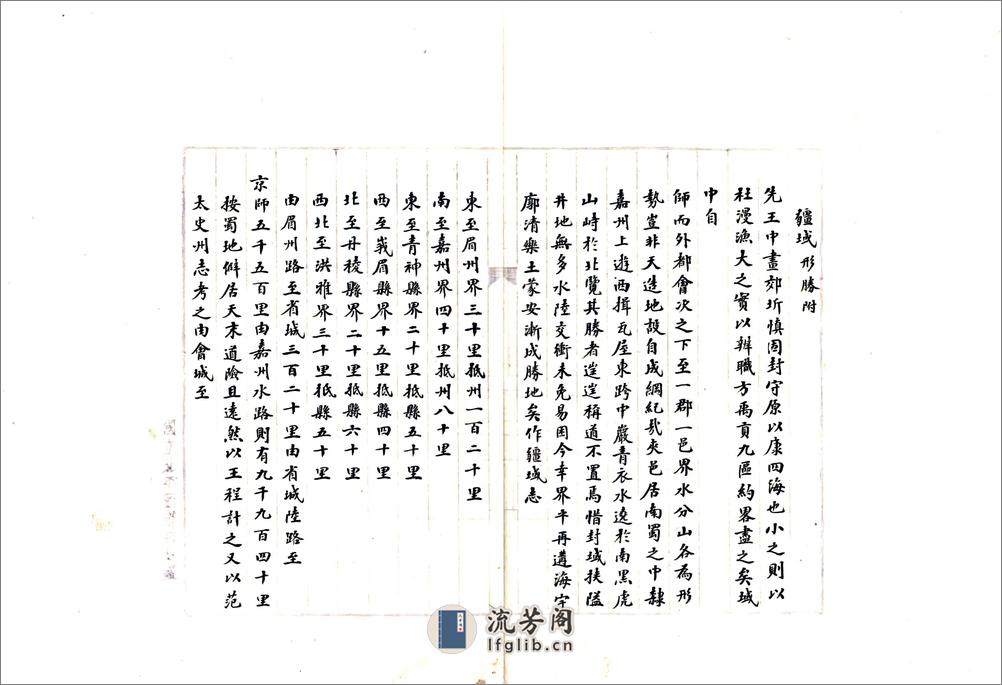 疆域 形勝附
先王中畫郊圻慎固封守原以康四海也小之則以
杜漫漁大之實以辨職方禹貢九區約畧盡之矣域
中自
師而外都會次之下至一郡一邑界水分山各為形
勢豈非天造地設自成綱紀哉夾邑居南蜀之中隸
嘉州上遊西揖瓦屋東跨中巖青衣水遶於南黑虎
山峙於北覽其勝者遑遑稱道不置焉惜封域狹隘
井地無多水陸交衝未免易困今幸界平再遘海宇
廓清樂土蒙安漸成勝地矣作疆域志
東至眉州界三十里抵州一百二十里
南至嘉州界四十里抵州八十里
東至青神縣界二十里抵縣五十里
西至峩眉縣界十五里抵縣四十里
北至丹稜縣界二十里抵縣六十里
西北至洪雅界三十里抵縣五十里
由眉州路至省城三百二十里由省城陸路至
京師五千五百里由嘉州水路則有九千九百四十里
按蜀地僻居天末道險且遠然以王程計之又以范
太史州志考之由會城至
流芳阁
lfglib.cn